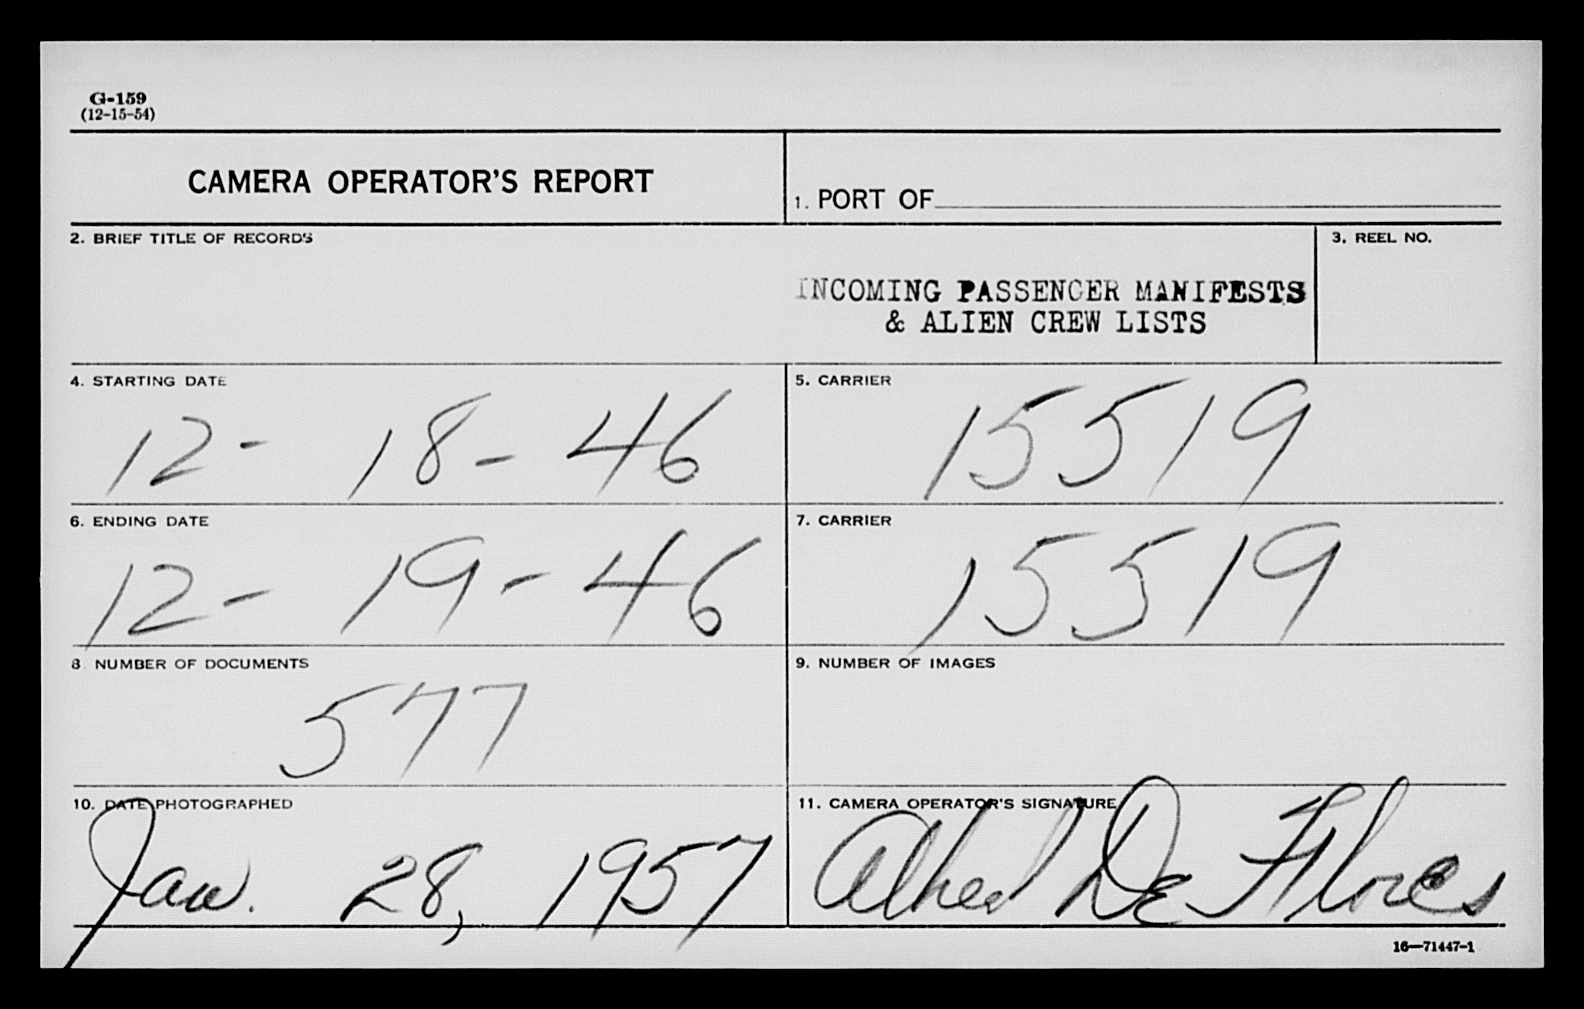 G-159
(12-15-54)
CAMERA OPERATOR'S REPORT
1. PORT OF
2. BRIEF TITLE OF RECORDS
3. REEL NO.
INCOMING PASSENGER MANIFESTS
& ALIEN CREW LISTS
4. STARTING DATE
12- 18-46
5. CARRIER
15519
6. ENDING DATE
12- 19-46
7. CARRIER
15519
8. NUMBER OF DOCUMENTS
577
9. NUMBER OF IMAGES
10. DATE PHOTOGRAPHED
Jan. 28, 1957
11. CAMERA OPERATOR'S SIGNATURE
Alfred De Flores
16—71447-1